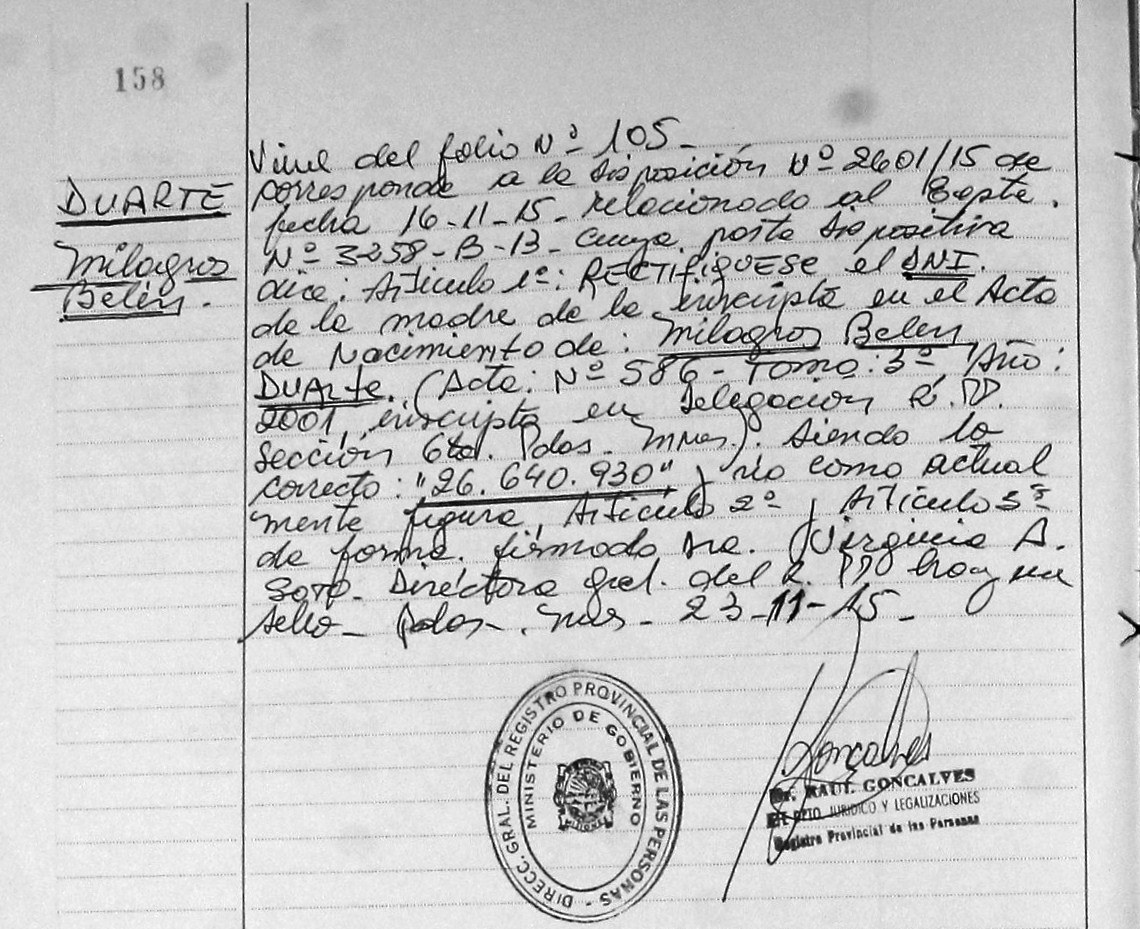 158
DUARTE
Milagros
Belén.
Viene del folio Nº 105-
corresponde a la disposición Nº 2601/15 de
fecha 16-11-15- relacionado al Expte.
Nº 3258-B-13- cuya parte dispositiva
dice: Artículo 1º: RECTIFIQUESE el DNI.
de la madre de la inscripta en el Acta
de Nacimiento de: Milagros Belén
DUArte. (Acta: Nº 586- Tomo: 3º, Año:
2001, inscripta en Delegación R. PP.
Sección 6ta. Pdas. Mnes.). Siendo lo
correcto: "26.640.930" y no como actual
mente figura, Artículo 2º y Artículo 3º
de forma. firmado Sra. Virginia A.
Soto- Directora gral. del R. PP hay un
sello- Pdas-. Mnes- 23-11-15-
DIRECC. GRAL. DEL REGISTRO PROVINCIAL DE LAS PERSONAS -
MINISTERIO DE GOBIERNO
Goncalves
Dr. RAUL GONCALVES
DPTO. JURIDICO Y LEGALIZACIONES
Registro Provincial de las Personas